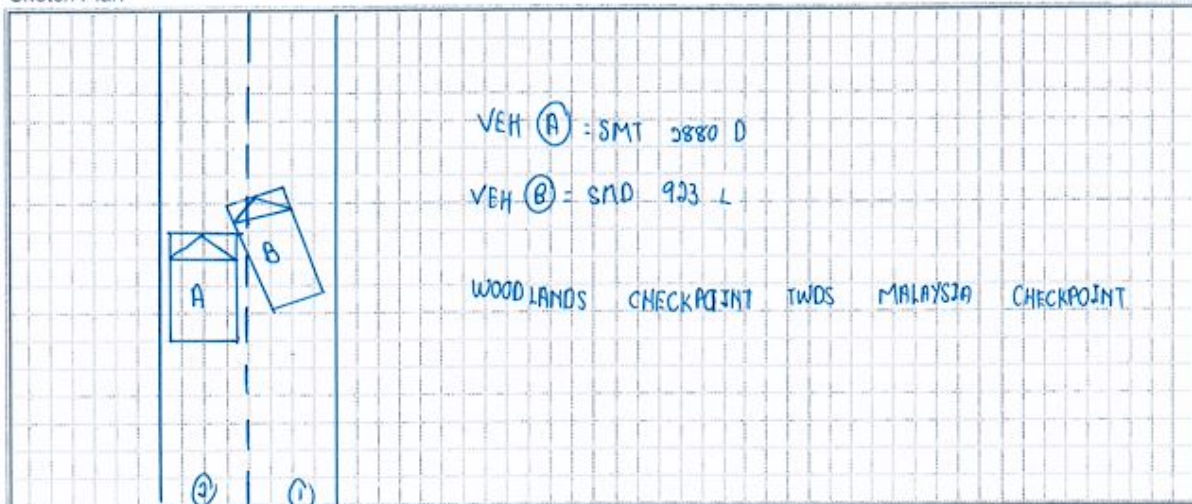 VEH Ⓐ = SMT 2880 D
VEH Ⓑ = SMD 923 L
B
A
WOODLANDS CHECKPOINT TWDS MALAYSIA CHECKPOINT
② ①